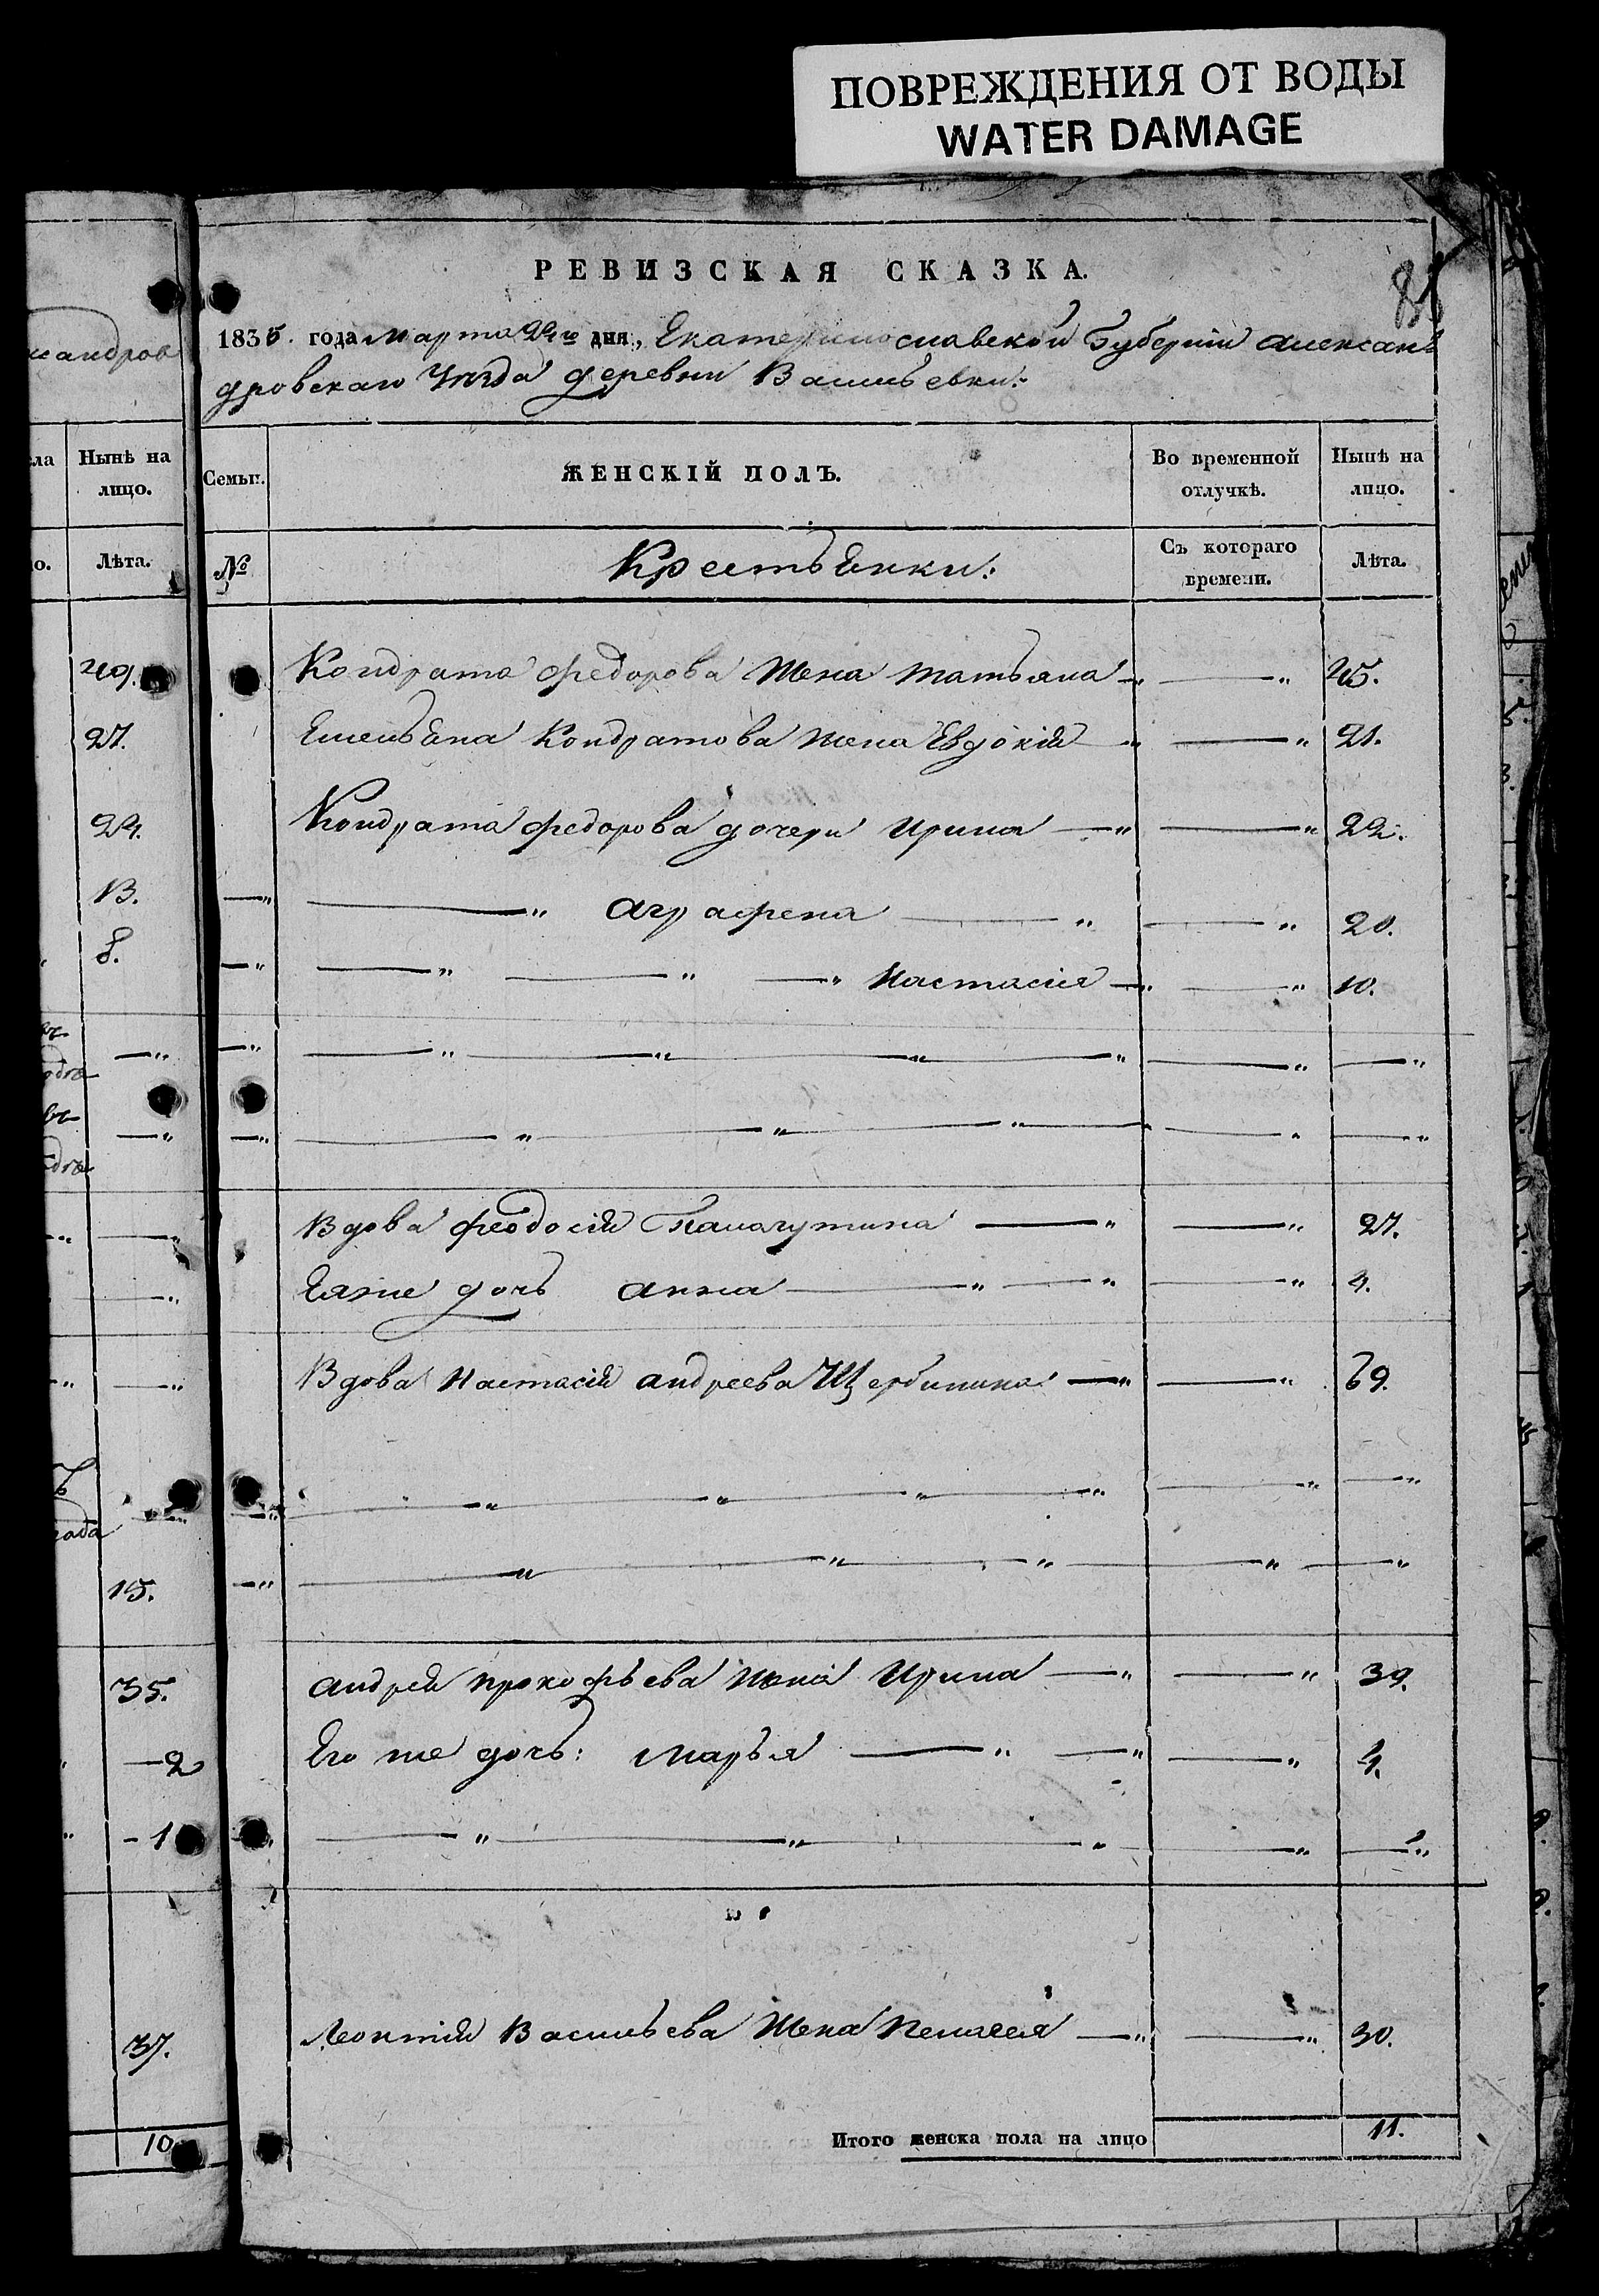 ПОВРЕЖДЕНИЯ ОТ ВОДЫ
WATER DAMAGE
РЕВИЗСКАЯ СКАЗКА.
1835. года Марта 24го дня, Екатеринославской Губерніи Алексан
дровскаго Уѣзда деревни Васильевки:
Нынѣ на лицо.
Семьи.
ЖЕНСКІЙ ПОЛЪ.
Во временной отлучкѣ.
Нынѣ на лицо.
Лѣта.
№
Крестьянки:
Съ котораго времени.
Лѣта.
49.
Кондрата Федорова жена Татьяна — „ — „ 45.
27.
Емельяна Кондратова жена Евдокія — „ — „ 21.
24.
Кондрата Федорова дочери Ирина — „ — „ 22.
13.
— „ — „ Аграфена — „ — „ 20.
8.
— „ — „ — „ — „ Настасія — „ — „ 10.
— „ — „ — „ — „ — „ — „ — „ — „
— „ — „ — „ — „ — „ — „ — „
Вдова Феодосія — „ — „ 27.
Еяже дочь Анна — „ — „ — „ 4.
Вдова Настасія Андреева Щербинина — „ — „ 69.
— „ — „ — „ — „ — „ — „ — „
15.
— „ — „ — „ — „ — „ — „
35.
Андрея Прокофьева жена Ирина — „ — „ 39.
— 2
Его же дочь: Марья — „ — „ — „ 4.
— 1
— „ — „ — „ — „ — „
37.
Леонтія Васильева жена Пелагея — „ — „ 30.
10
Итого женска пола на лицо 11.